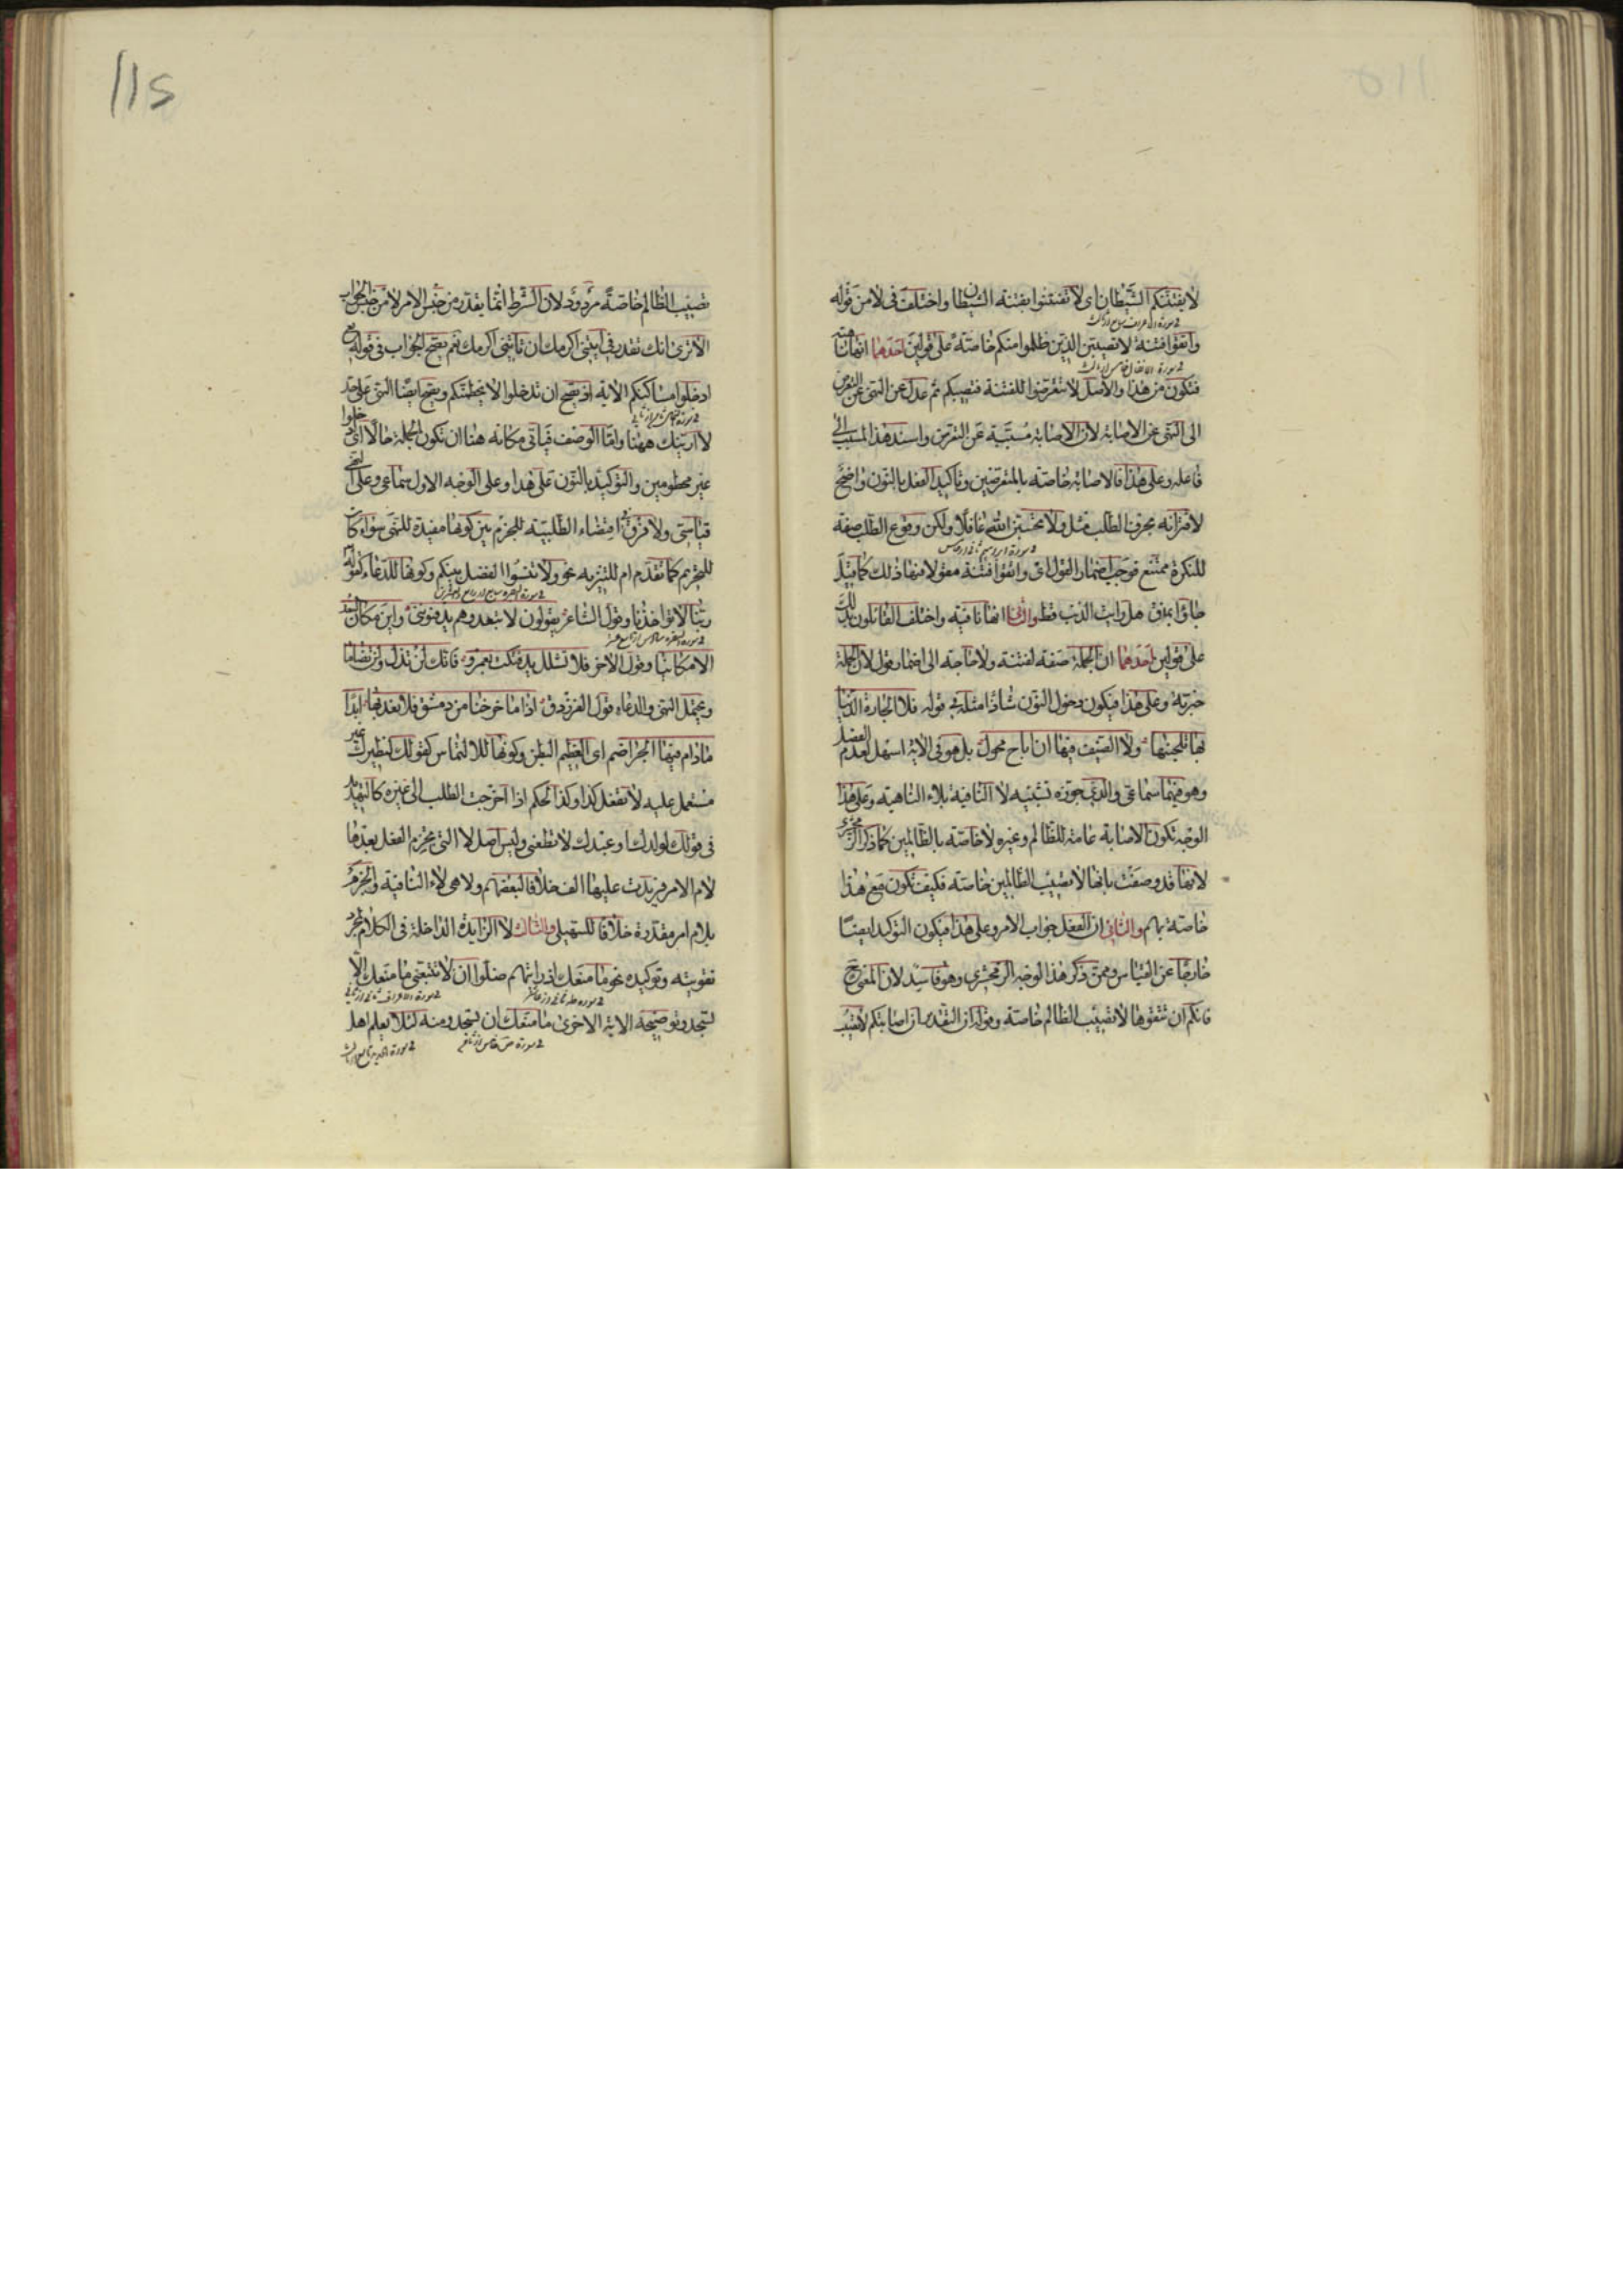 لا يفتننكم الشيطان اى لا تفتتنوا بفتنة الشيطان واختلف فى لا من قوله
فى سورة الاعراف
واتقوا فتنة لا تصيبن الذين ظلموا منكم خاصة على قولين احدهما انها ناهية
فى سورة الانفال
فتكون من هذا والاصل لا تتعرضوا للفتنة فتصيبكم ثم عدل عن النهى عن التعرض
الى النهى عن الاصابة لان الاصابة مسببة عن التعرض واسند هذا المسبب الى
فاعله وعلى هذا فالاصابة خاصة بالمتعرضين وتاكيد الفعل بالنون واضح
لاقترانه بحرف الطلب مثل ولا تحسبن الله غافلا ولكن وقوع الطلب صفة
فى سورة ابرهيم
للنكرة ممتنع فوجب اضمار القول اى واتقوا فتنة مقولا فيها ذلك كما قيل
جاؤا بمذق هل رايت الذئب قط والثانى انها نافية واختلف القائلون بذلك
على قولين احدهما ان الجملة صفة لفتنة ولا حاجة الى اضمار قول لان الجملة
خبرية وعلى هذا فيكون دخول النون شاذا مثله فى قوله فلا الجارة الدنيا
بها تلحينها ولا الضيف فيها ان اناخ محول بل هو فى الاية اسهل لعدم الفصل
وهو فيهما سماعى والذى جوزه تشبيه لا النافية بلاء الناهية وعلى هذا
الوجه تكون الاصابة عامة للظالم وغيره لا خاصة بالظالمين كما ذكر الزمخشرى
لانها قد وصفت بانها لا تصيب الظالمين خاصة فكيف تكون مع هذا
خاصة بهم والثانى ان الفعل جواب الامر وعلى هذا فيكون التوكيد ايضا
خارجا عن القياس وممن ذكر هذا الوجه الزمخشرى وهو فاسد لان المعنى ح
فانكم ان تتقوها لا تصيب الظالم خاصة وقوله ان التقدير ان اصابتكم لا تصيب
112
تصيب الظالم خاصة مردود لان الشرط انما يقدر من جنس الامر لا من جنس الجواب
الا ترى انك تقدر فى ايتنى اكرمك ان تاتنى اكرمك نعم يصح الجواب فى قوله تع
ادخلوا مساكنكم الاية اذ يصح ان تدخلوا لا يحطمنكم ويصح ايضا النهى على حد
لا ارينك ههنا واما الوصف فياتى مكانه هنا ان تكون الجملة حالا اى ادخلوا
غير محطومين والتوكيد بالنون على هذا وعلى الوجه الاول سماعى وعلى النهى
قياسى ولا فرق فى اقتضاء الطلبية للجزم بين كونها مفيدة للنهى سواء كان
للتحريم كما تقدم ام للتنزيه نحو ولا تنسوا الفضل بينكم وكونها للدعاء كقوله تع
فى سورة البقرة
ربنا لا تؤاخذنا وقول الشاعر يقولون لا تبعد وهم يدفنوننى واين مكان البعد
فى سورة البقرة
الا مكانيا وقول الاخر فلا تشلل يد فتكت بعمرو فانك لن تذل ولن تضاما
ويحتمل النهى والدعاء قول الفرزدق اذا ما خرجنا من دمشق فلا نعد بها ابدا
مادام فيها الجراضم اى العظيم البطن وكونها للالتماس كقولك لنظيرك غير
مستعمل عليه لا تفعل كذا وكذا الحكم اذا خرجت الطلب الى غيره كالتهديد
فى قولك لولدك او عبدك لا تطعنى وليس اصل لا التى يجزم الفعل بعدها
لام الامر فزيدت عليها الف خلافا لبعضهم ولا هى لاء النافية والجزم
بلام امر مقدرة خلافا للسهيلى والثالث لا الزايدة الداخلة فى الكلام لمجرد
تقويته وتوكيده نحو ما منعك اذ رايتهم ضلوا ان لا تتبعنى ما منعك الا
تسجد وتوضيحه الاية الاخرى ما منعك ان تسجد ومنه لئلا يعلم اهل